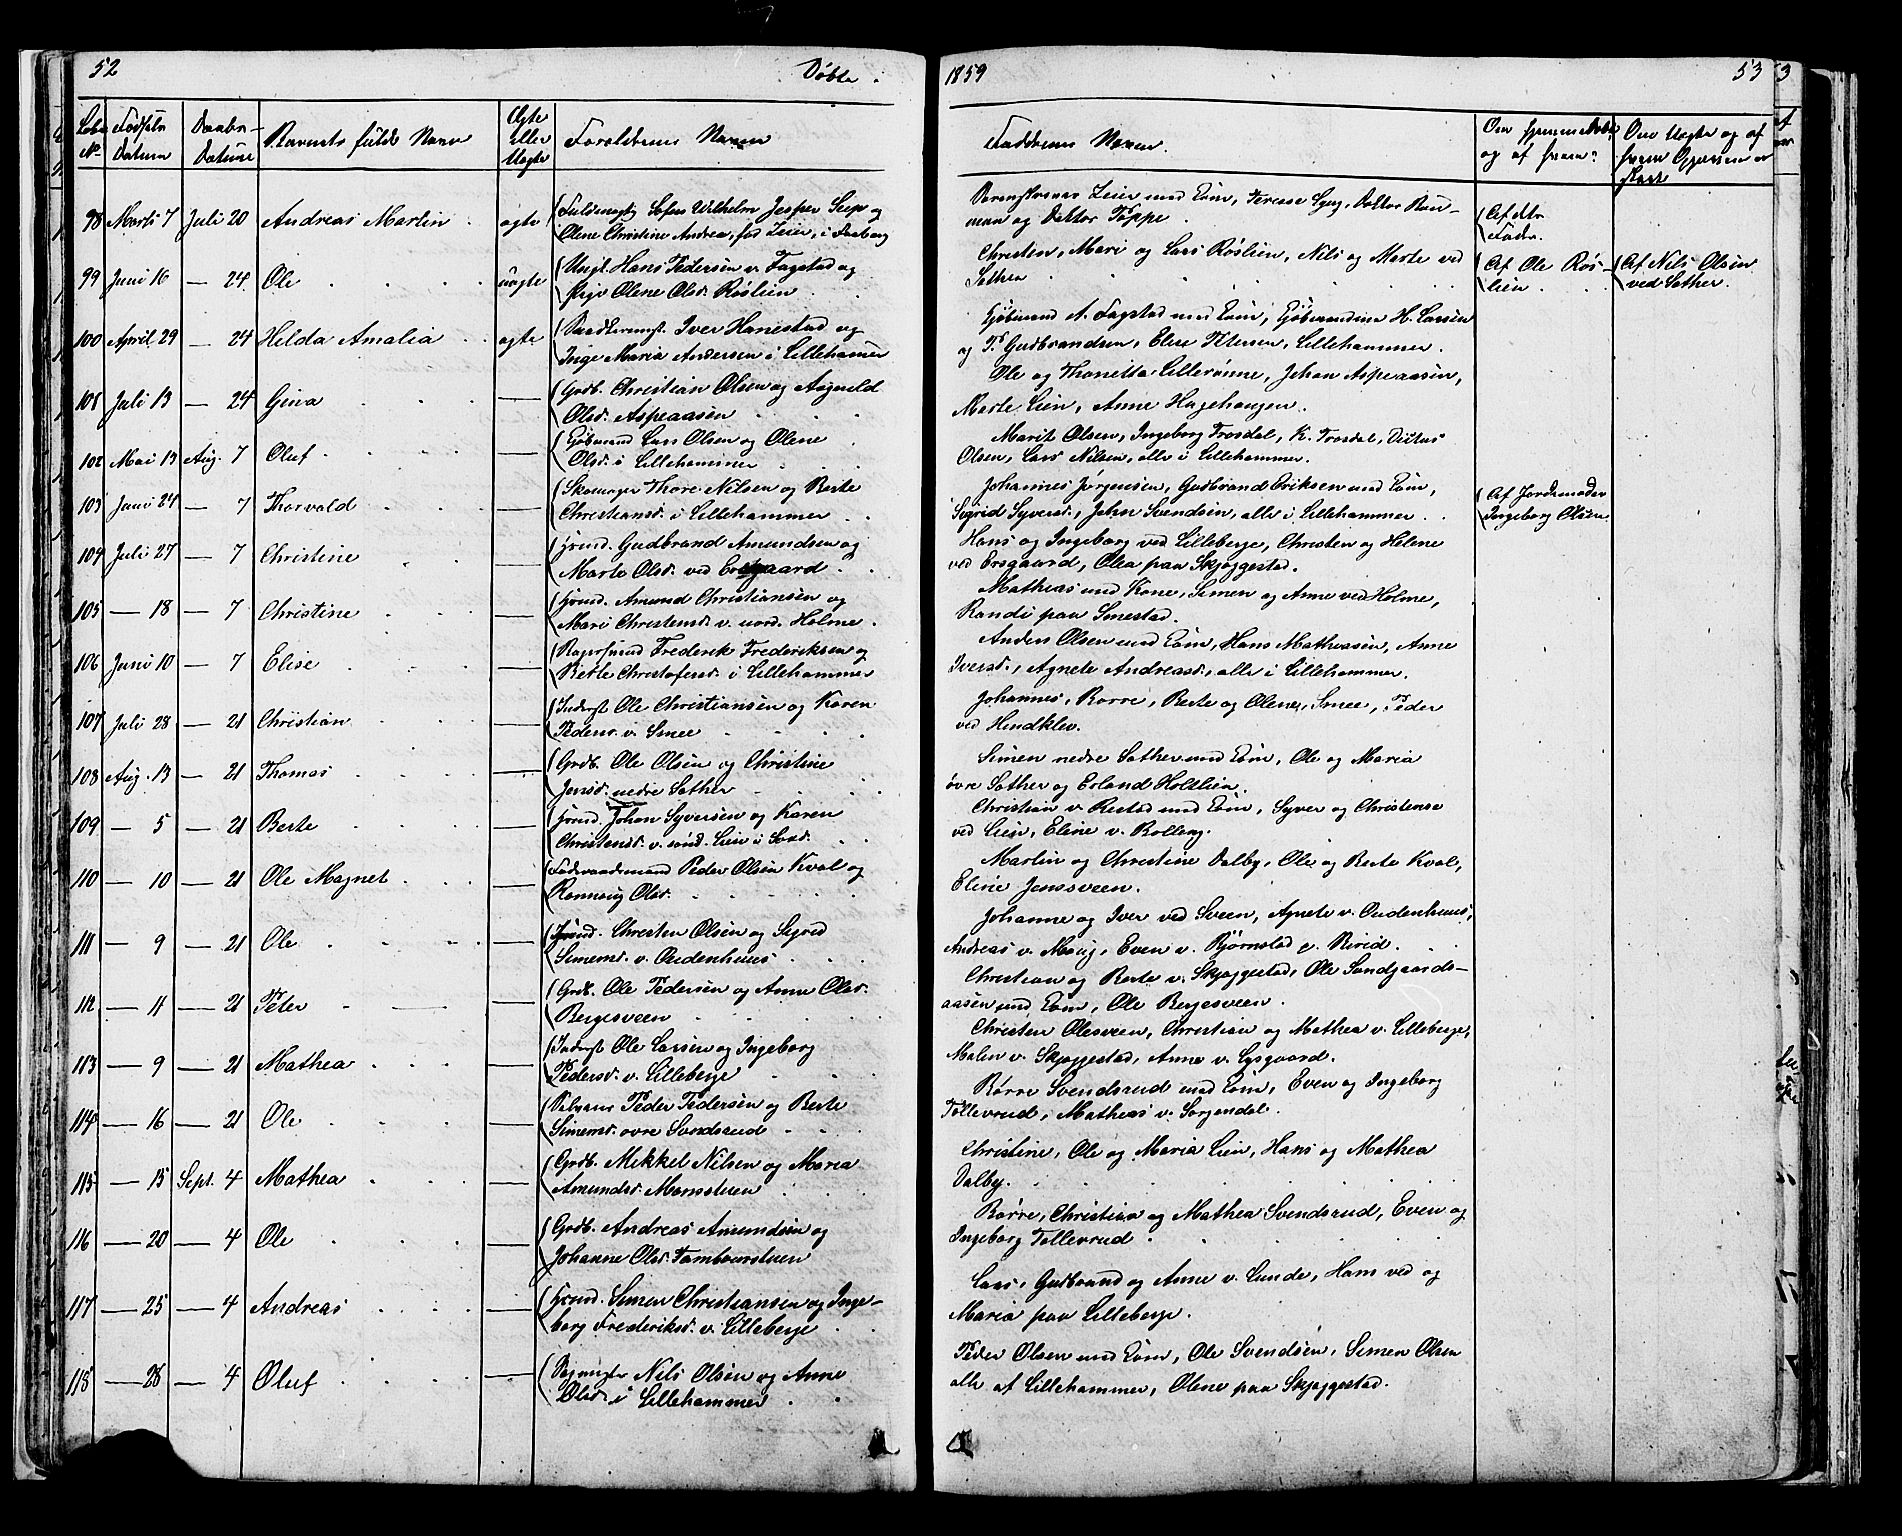 52
Døbte.
Løbe No.
Fødsels Datum
Daabs-Datum
Barnets fulde Navn
Ægte eller Uægte
Forældrenes Navne
98 Marts 7 Juli 20 Andreas Martin ægte Fuldmægtig Wilhelm Jesper Seip og
Olene Christine Andrea, født Zeier, i Faaberg
99 Juni 16 — 24 Ole uægte Ungk. Hans Pedersen v. Fagstad og
Pige Olene Olsd. Røslien
100 April 29 — 24 Hilda Amalia ægte Iver Hanestad og
Inge Maria Andersen i Lillehamer
101 Juli 13 — 24 Gina — Grdb. Christian Olsen og Aagnild
Olsd. Aspeaasen
102 Mai 13 Aug. 7 Oluf — Gjørtmand Lars Olsen og Olene
Olsd. i Lillehammer
103 Juni 24 — 7 Thorvald — Skomager Thore Nilsen og Berte
Christiansd. i Lillehammer
104 Juli 27 — 7 Christine — Hsmd. Gudbrand Amundsen og
Marte Olsd. ved Ersgaard
105 — 18 — 7 Christine — Hsmd. Amund Christiansen og
Mari Christensd. v. nord. Holme
106 Juni 10 — 7 Elise — Frederik Frederiksen og
Berte Christofersd. i Lillehammer
107 Juli 28 — 21 Christian — Inderst Ole Christiansen og Karen
Pedersd. v. Smee
108 Aug. 13 — 21 Thomas — Grdb. Ole Olsen og Christine
Jensd. nedre Sother
109 — 5 — 21 Berte — Hsmd. Johan Syversen og Karen
Christensd. v. sønd. Lien i
110 — 10 — 21 Ole Magnet — Føderaadsmand Peder Olsen Kval og
Rønnaug Olsd.
111 — 9 — 21 Ole — Hsmd. Christen Olsen og Sigrid
Simensd. v. Oudenhuus
112 — 11 — 21 Peter — Grdb. Ole Pedersen og Anne Olsd.
Bergesveen
113 — 9 — 21 Mathea — Inderst Ole Larsen og Ingeborg
Pedersd. v. Lilleberge
114 — 16 — 21 Ole — Selveier Peder Pedersen og Berte
Simensd. øvre Svendsrud
115 — 15 Sept. 4 Mathea — Grdb. Mikkel Nilsen og Maria
Amundsd. Monsstuen
116 — 20 — 4 Ole — Grdb. Andreas Amundsen og
Johanne Olsd. Tambourstuen
117 — 25 — 4 Andreas — Hsmd. Simen Christiansen og Inge-
borg Frederiksd. v. Lilleberge
118 — 28 — 4 Oluf — Nils Olsen og Anne
Olsd. i Lillehammer
1859
53
Faddernes Navne.
Om hjemmedøbt og af hvem?
Om Uægte og af hvem Opgivelsen er skeet
Zeier med Kone, Terese Lyng, Doktor Bau-
mann og Doktor Töppe.
Af dets Fader.
Christen, Mari og Lars Røslien, Nils og Marte ved
Sother
Af Ole Røs-
lien
Af Nils Olsen
ved Sother.
A. Fagstad med Kone, H. Larsen
og P. Gudbrandsen, Elise Petersen, Lillehammer.
Ole og Thonetta Lillerønne, Johan Aspeaasen,
Marte Lien, Anne Hagehaugen.
Marit Olsen, Ingeborg Trosdal, K. Trosdal, Ditlus
Olsen, Lars Nilsen, alle i Lillehammer.
Johannes Jørgensen, Gudbrand Eriksen med Kone,
Sigrid Syversd., John Svendsen, alle i Lillehammer
Af Jordemoder
Ingeborg Olsen.
Hans og Ingeborg ved Lilleberge, Christen og Helene
ved Ersgaard, Olea paa Skjøggestad.
Mathias med Kone, Simen og Anne ved Holme,
Randi paa Smestad.
Anders Olsen med Kone, Hans Mathiasen, Anne
Iversd., Agnete Andreasd., alle i Lillehammer.
Johannes, Borre, Berte og Olene, Smee, Peder
ved Hindklev.
Simen nedre Sother med Kone, Ole og Maria
øvre Sother og Erland Holtlien.
Christian v. Restad med Kone, Syver og Christense
ved Lien, Eline v. Rolberg.
Martin og Christine Dalby, Ole og Berte Kval,
Eline Jensveen.
Johanne og Iver ved Sveen, Agnete v. Oudenhuus,
Andreas v. Moug, Even v. Bjørnstad p. Birid.
Christian og Berte v. Skjøggestad, Ole Sandgaards-
aasen med Kone, Ole Bergesveen.
Christen Olesveen, Christian og Mathea v. Lilleberge,
Malen v. Skjøggestad, Anne v. Lysgaard.
Børre Svendsrud med Kone, Even og Ingeborg
Tollevrud, Mathias v. Sorgendal.
Christine, Ole og Maria Lien, Hans og Mathea
Dalby.
Børre, Christian og Mathea Svendsrud, Even og
Ingeborg Tollevrud.
Lars, Gudbrand og Anne v. Lunde, Hans ved og
Maria paa Lilleberge.
Peder Olsen med Kone, Ole Svendsen, Simen Olsen
alle af Lillehammer, Olene paa Skjøggestad.